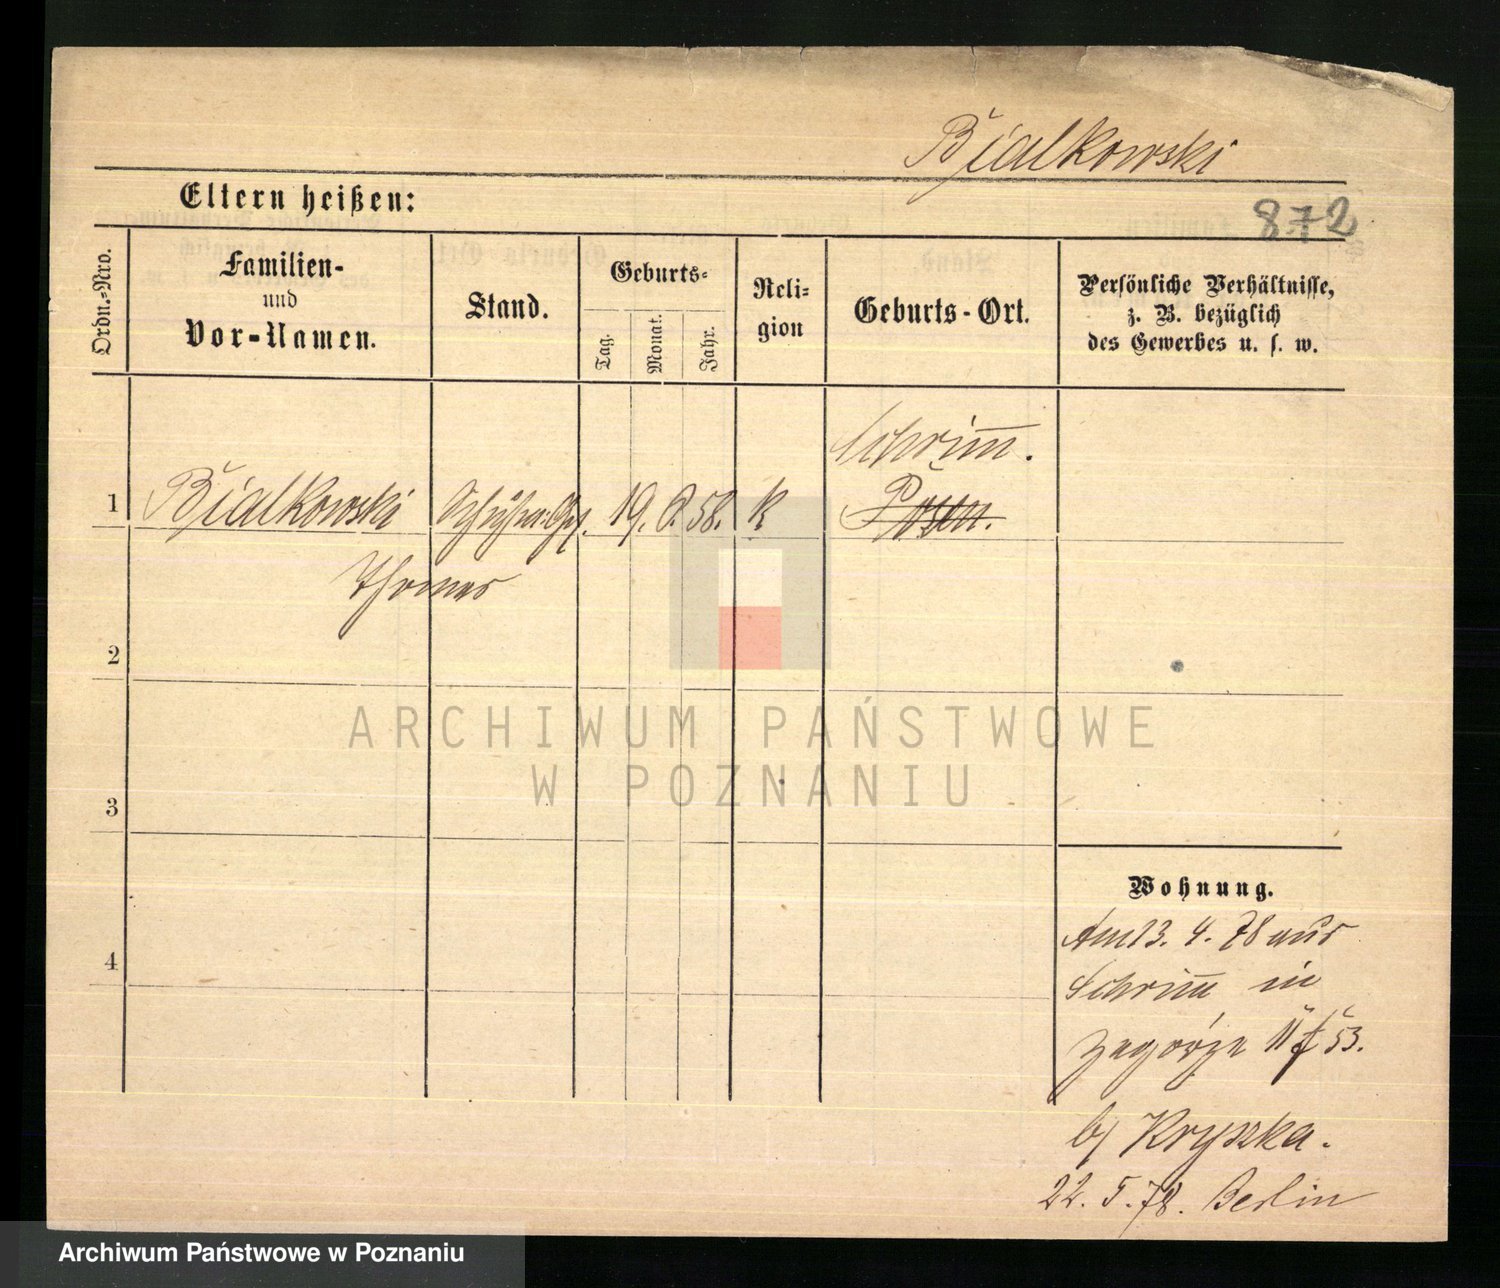 Bialkowski
Eltern heißen:
872
Ordn.-Nro.
Familien-
und
Vor-Namen.
Stand.
Geburts-
Tag.
Monat.
Jahr.
Reli-
gion
Geburts-Ort.
Persönliche Verhältnisse,
z. B. bezüglich
des Gewerbes u. s. w.
Schrim̅.
1 Bialkowski 19. 58. K Posen.
Thomas
2
3
4
Wohnung.
Am 13. 4. 78 aus
Schrim̅ in
Zagórze 11 53.
b/ Kryszka.
22. 5. 78. Berlin
ARCHIWUM PAŃSTWOWE
W POZNANIU
Archiwum Państwowe w Poznaniu